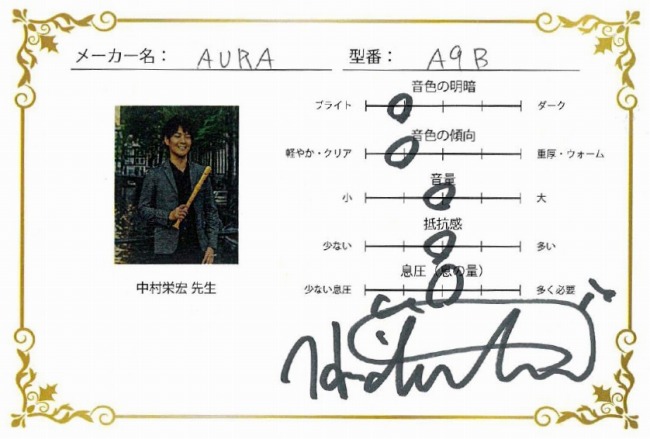 メーカー名： AURA 型番： A9B
音色の明暗
ブライト ダーク
音色の傾向
軽やか・クリア 重厚・ウォーム
音量
小 大
抵抗感
少ない 多い
息圧（息の量）
少ない息圧 多く必要
中村栄宏 先生